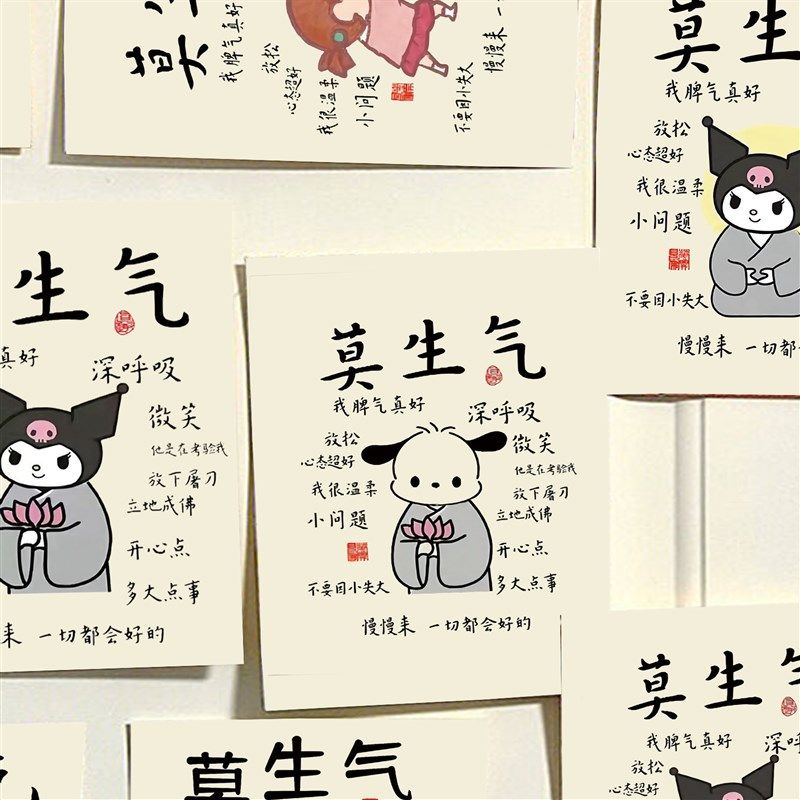 莫生
我脾气真好
放松
心态超好
我很温柔
小问题
不要因小失大
慢慢来 一
莫生
我脾气真好
放松
心态超好
我很温柔
小问题
不要因小失大
慢慢来 一切都
生气
真好
深呼吸
微笑
他是在考验我
放下屠刀
立地成佛
开心点
多大点事
来 一切都会好的
莫生气
我脾气真好
深呼吸
放松
微笑
心态超好
他是在考验我
我很温柔
放下屠刀
立地成佛
小问题
开心点
不要因小失大
多大点事
慢慢来 一切都会好的
莫生气
我脾气真好
深呼
放松
心态超好
莫生气